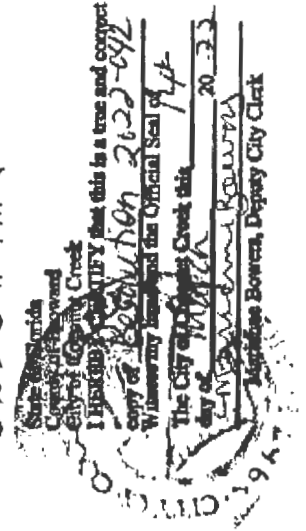 State of Florida
County of Broward
City of Coconut Creek
I HEREBY CERTIFY that this is a true and correct
copy of Resolution 2022-042
Witness my hand and the Official Seal of
The City of Coconut Creek this
day of March 20 22
Bowers, Deputy City Clerk
CITY OF
196